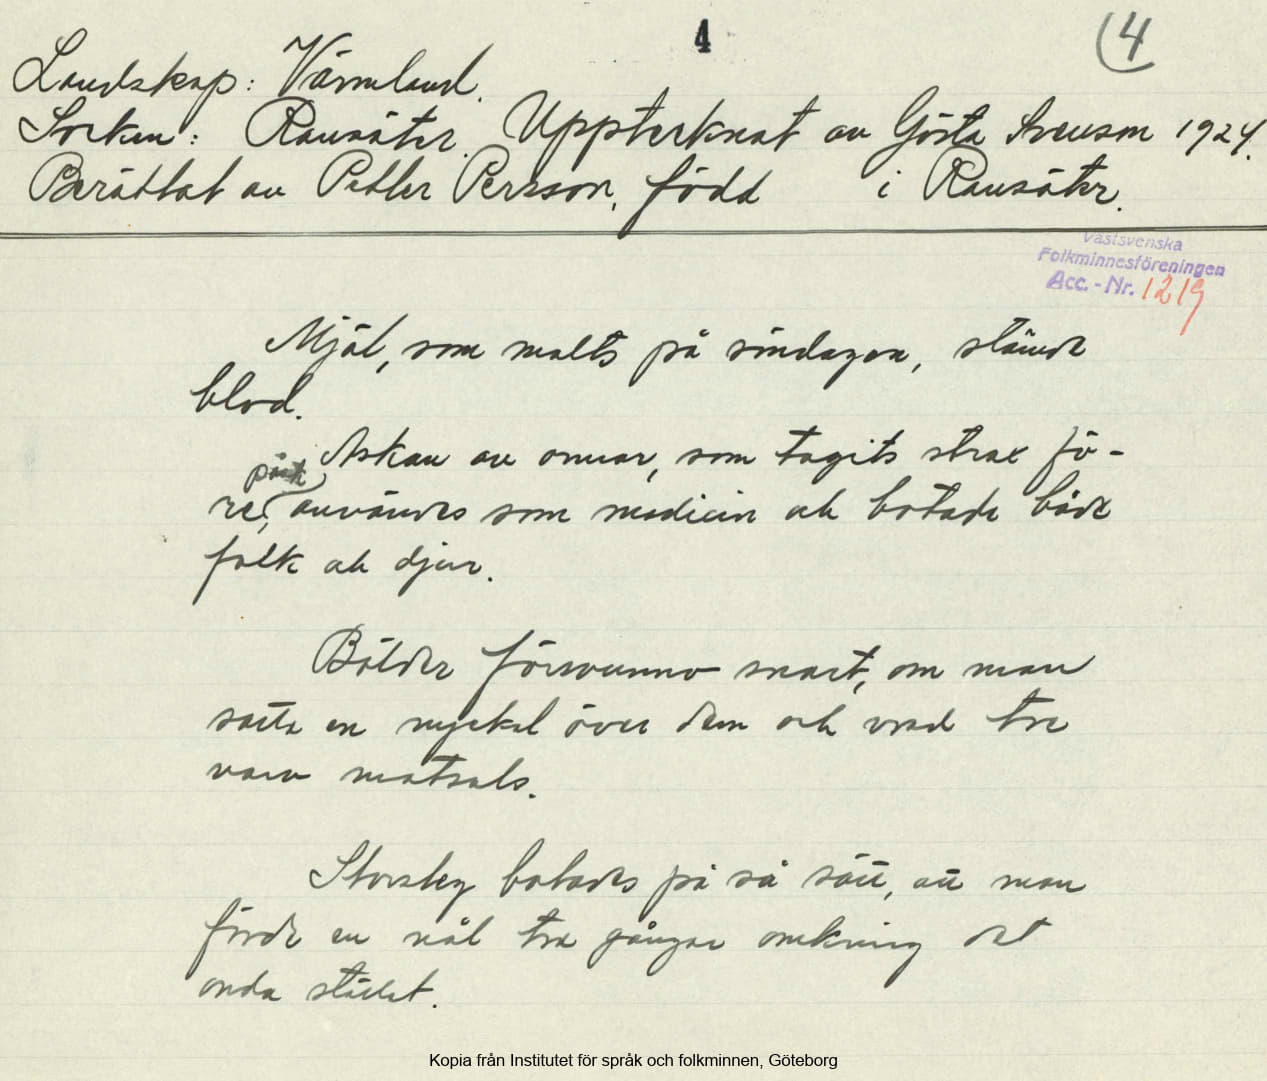 4
(4
Landskap: Värmland.
Socken: Ransäter. Upptecknat av Gösta Svenson 1924.
Berättat av Petter Persson, född i Ransäter.
Västsvenska
Folkminnesföreningen
Acc.-Nr. 1219
Mjöl, som malts på söndagen, stämde
blod.
Askan av ormar, som tagits strax fö-
påsk
re, användes som medicin och botade både
folk och djur.
Bölder försvunno snart, om man
satte en nyckel över dem och vred tre
varv motsols.
Storsteg botades på så sätt, att man
förde en nål tre gånger omkring det
onda stället.
Kopia från Institutet för språk och folkminnen, Göteborg